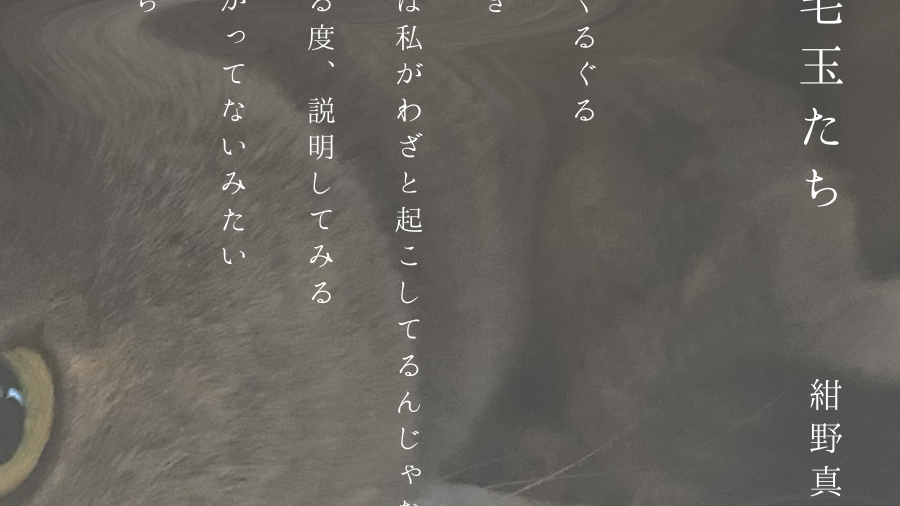 毛玉たち
紺野真
ぐるぐる
き
は私がわざと起こしてるんじゃな
る度、説明してみる
かってないみたい
ら